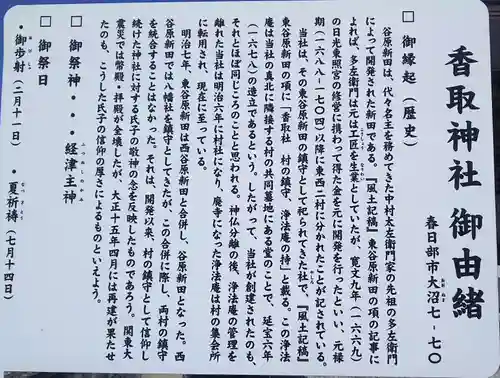 香取神社 御由緒
春日部市大沼七-七〇
□ 御縁起(歴史)
谷原新田は、代々名主を務めてきた中村太左衛門家の先祖の多左衛門
によって開発された新田である。『風土記稿』東谷原新田の項の記事に
よれば、多左衛門は元は工匠を生業としていたが、寛文九年(一六六九)
の日光東照宮の修営に携わって得た金を元に開発を行ったといい、元禄
期(一六八八-一七〇四)以降に東西二村に分かれたことが記されている。
当社は、その東谷原新田の鎮守として祀られてきた社で、『風土記稿』
東谷原新田の項に「香取社 村の鎮守、浄法庵の持」と載る。この浄法
庵は当社の真北に隣接する村の共同墓地にある堂のことで、延宝六年
(一六七八)の造立であるという。したがって、当社が創建されたのも、
それとほぼ同じころのことと思われる。神仏分離の後、浄法庵の管理を
離れた当社は明治六年に村社になり、廃寺になった浄法庵は村の集会所
に転用され、現在に至っている。
明治七年、東谷原新田は西谷原新田と合併し、谷原新田となった。西
谷原新田では八幡社を鎮守としてきたが、この合併に際し、両村の鎮守
を統合することはなかった。それは、開発以来、村の鎮守として信仰し
続けた神社に対する氏子の敬神の念を反映したものであろう。関東大
震災では幣殿・拝殿が全壊したが、大正十五年四月には再建が果たせ
たのも、こうした氏子の信仰の厚さによるものといえよう。
□ 御祭神・・・経津主神
□ 御祭日
・御歩射(二月十一日) ・夏祈祷(七月十四日)